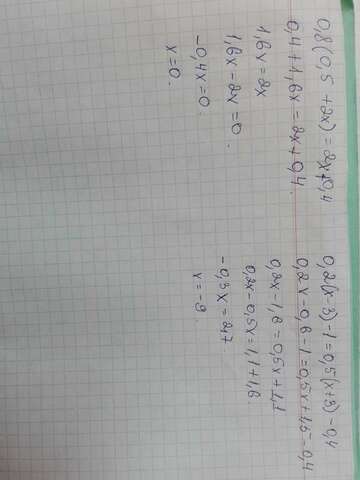 0,8(0,5+2x)=2x+0,4
0,4+1,6x=2x+0,4.
1,6x=2x
1,6x-2x=0.
-0,4x=0.
x=0.
0,2(x-3)-1=0,5(x+3)-0,4
0,2x-0,6-1=0,5x+1,5-0,4
0,2x-1,6=0,5x+1,1
0,2x-0,5x=1,1+1,6.
-0,3x=2,7
x=-9.